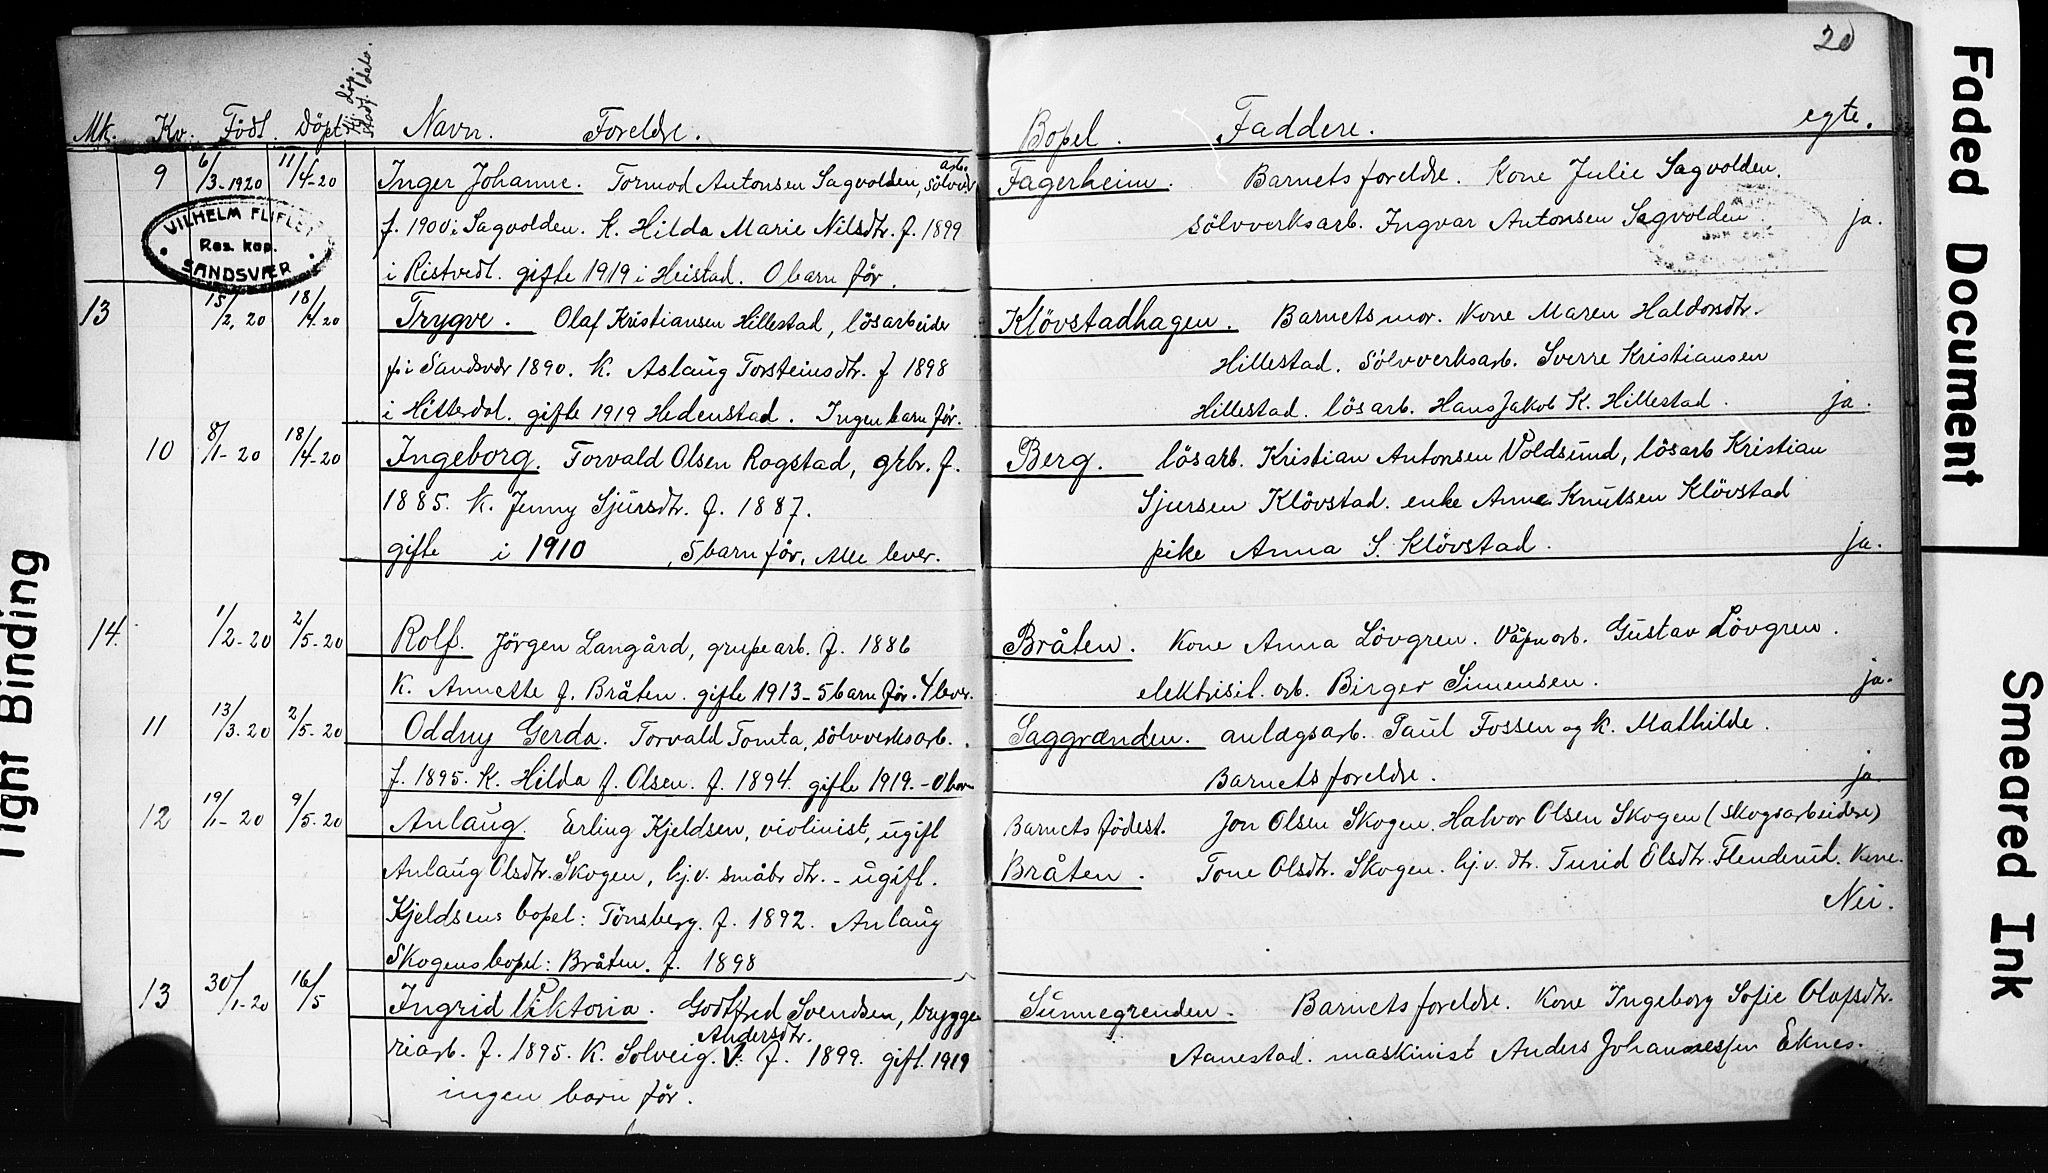 20
Mk. Kv. Födt. Döpt Navn. Foreldre. Bopel. Faddere. egte.
9 6/3-1920 11/4-20 Inger Johanne. Tormod Antonsen Sagvolden, sölvverksarb. Fagerheim. Barnets foreldre. Kone Julie Sagvolden.
f. 1900 i Sagvolden. K. Hilda Marie Nilsdtr. f. 1899 Sölvverksarb. Ingvar Antonsen Sagvolden ja.
i Ristvedt. gifte 1919 i Heistad. O barn för.
VILHELM FLIFLET
Res. kap.
SANDSVÆR
13 15/2, 20 18/4-20 Trygve. Olaf Kristiansen Hillestad, lösarbeider Klövstadhagen. Barnets mor. Kone Maren Haldorsdtr.
f. i Sandsvær 1890. K. Aslaug Torsteinsdtr. f 1898 Hillestad. Sölvverksarb. Sverre Kristiansen
i Hitterdal. gifte 1919 Hedenstad. Ingen barn för. Hillestad. lösarb. Hans Jakob K. Hillestad. ja.
10 8/1-20 18/4-20 Ingeborg. Torvald Olsen Rogstad, grbr. f. Berg. lösarb. Kristian Antonsen Voldsund, lösarb Kristian
1885. K. Jenny Sjursdtr. f. 1887. Sjursen Klövstad. enke Anne Knutsen Klövstad
gifte i 1910, 5 barn för. Alle lever. pike Anna S. Klövstad. ja.
14. 1/2-20 2/5-20 Rolf. Jörgen Langård, grupearb. f. 1886 Bråten. Kone Anna Lövgren. Våpnarb. Gustav Lövgren.
K. Annette f. Bråten. gifte 1913 - 5 barn för. 4 lever. elektrisit. arb. Birger Simensen. ja.
11 13/3-20 2/5-20 Oddny Gerda. Torvald Tomta, sölvverksarb. Saggrænden. anlægsarb. Paul Fossen og K. Mathilde.
f. 1895. K. Hilda f. Olsen. f. 1894. gifte 1919. - O barn Barnets foreldre. ja.
12 19/1-20 9/5-20 Anlaug. Erling Kjeldsen, violinist, ugift Barnets födest. Jon Olsen Skogen. Halvor Olsen Skogen (skogsarbeidere)
Anlaug Olsdtr. Skogen, hj.v. småbr dtr. - ugift. Bråten. Tone Olsdtr. Skogen. hj.v. dtr. Turid Olsdtr. Flenderud. Kone.
Kjeldsens bopel: Tönsberg. f. 1892. Anlaug Nei.
Skogens bopel: Bråten. f. 1898
13 30/1-20 16/5 Ingrid Viktoria. Godtfred Svendsen, brygge Sunnegrenden. Barnets foreldre. Kone Ingeborg Sofie Olafsdtr.
riarb. f. 1895. K. Solveig. Andersdtr. f. 1899. gift. 1919 Aanestad. maskinist Anders Johannessen Eknes.
ingen barn för.
Tight Binding
Faded Document
Smeared Ink